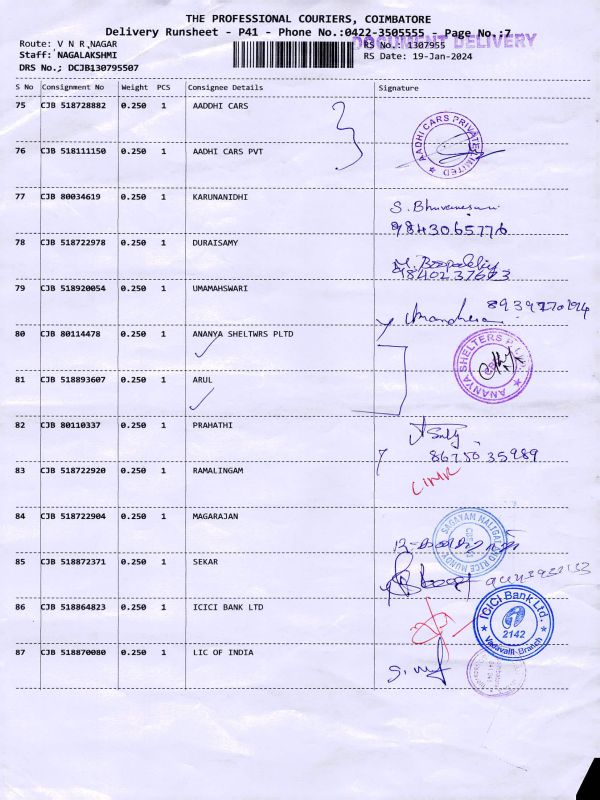 THE PROFESSIONAL COURIERS, COIMBATORE
Delivery Runsheet - P41 - Phone No.:0422-3505555 - Page No.:7
DOCUMENT DELIVERY
Route: V N R NAGAR
RS No.: 1307955
Staff: NAGALAKSHMI
RS Date: 19-Jan-2024
DRS No.; DCJB130795507
S No Consignment No Weight PCS Consignee Details Signature
75 CJB 518728882 0.250 1 AADDHI CARS
AADHI CARS PRIVATE LIMITED
76 CJB 518111150 0.250 1 AADHI CARS PVT
77 CJB 80034619 0.250 1 KARUNANIDHI
9843065776
78 CJB 518722978 0.250 1 DURAISAMY
79 CJB 518920054 0.250 1 UMAMAHSWARI
80 CJB 80114478 0.250 1 ANANYA SHELTWRS PLTD
ANANYA SHELTERS
81 CJB 518893607 0.250 1 ARUL
82 CJB 80110337 0.250 1 PRAHATHI
86750 35989
83 CJB 518722920 0.250 1 RAMALINGAM
84 CJB 518722904 0.250 1 MAGARAJAN
SAGAYAM MALIGAI AND RICE MUNDY
85 CJB 518872371 0.250 1 SEKAR
86 CJB 518864823 0.250 1 ICICI BANK LTD
ICICI Bank Ltd.
2142
Vadavalli-Branch
87 CJB 518870080 0.250 1 LIC OF INDIA